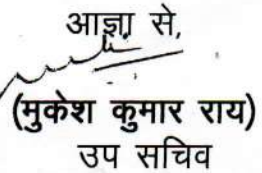 आज्ञा से,
(मुकेश कुमार राय)
उप सचिव